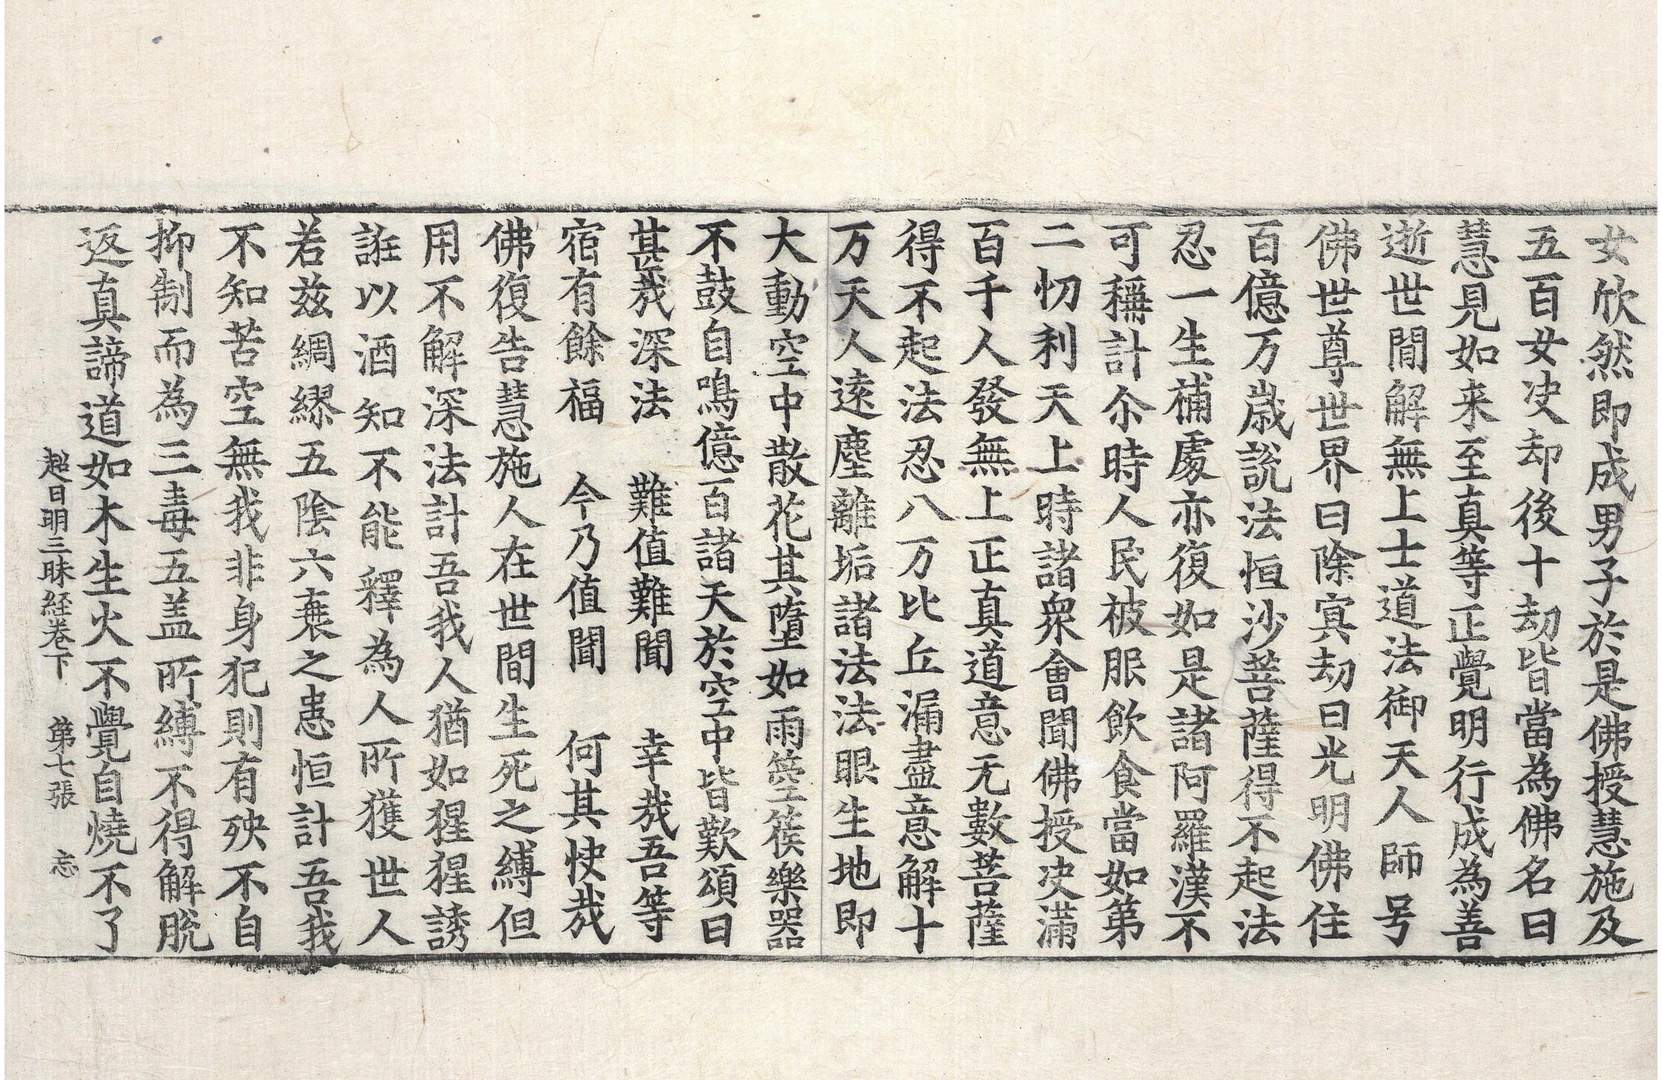 女欣然即成男子於是佛授慧施及
五百女决却後十劫皆當為佛名曰
慧見如来至真等正覺明行成為善
逝世間解無上士道法御天人師号
佛世尊世界曰除冥劫曰光明佛住
百億万歲說法恒沙菩薩得不起法
忍一生補處亦復如是諸阿羅漢不
可稱計尒時人民被服飲食當如第
二忉利天上時諸衆會聞佛授决滿
百千人發無上正真道意无數菩薩
得不起法忍八万比丘漏盡意解十
万天人遠塵離垢諸法法眼生地即
大動空中散花其墮如雨箜篌樂器
不鼓自鳴億百諸天於空中皆歎頌曰
甚哉深法　難值難聞　幸哉吾等
宿有餘福　今乃值聞　何其快哉
佛復告慧施人在世間生死之縛但
用不解深法計吾我人猶如猩猩誘
誑以酒知不能釋為人所獲世人
若兹綢繆五陰六衰之患恒計吾我
不知苦空無我非身犯則有殃不自
抑制而為三毒五盖所縛不得解脫
返真諦道如木生火不覺自燒不了
超日明三昧経卷下　第七張　忘